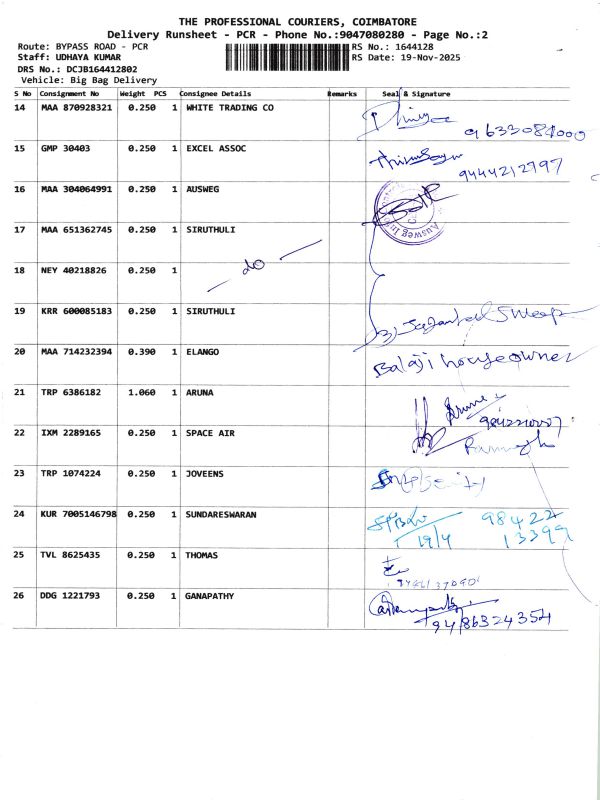 THE PROFESSIONAL COURIERS, COIMBATORE
Delivery Runsheet - PCR - Phone No.:9047080280 - Page No.:2
Route: BYPASS ROAD - PCR RS No.: 1644128
Staff: UDHAYA KUMAR RS Date: 19-Nov-2025
DRS No.: DCJB164412802
Vehicle: Big Bag Delivery
S No Consignment No Weight PCS Consignee Details Remarks Seal & Signature
14 MAA 870928321 0.250 1 WHITE TRADING CO
9633084000
15 GMP 30403 0.250 1 EXCEL ASSOC
9444212797
16 MAA 304064991 0.250 1 AUSWEG
17 MAA 651362745 0.250 1 SIRUTHULI
18 NEY 40218826 0.250 1 do
19 KRR 600085183 0.250 1 SIRUTHULI
20 MAA 714232394 0.390 1 ELANGO Balaji houseowner
21 TRP 6386182 1.060 1 ARUNA
22 IXM 2289165 0.250 1 SPACE AIR
23 TRP 1074224 0.250 1 JOVEENS
24 KUR 7005146798 0.250 1 SUNDARESWARAN 98422
13399
25 TVL 8625435 0.250 1 THOMAS
26 DDG 1221793 0.250 1 GANAPATHY
9486324354